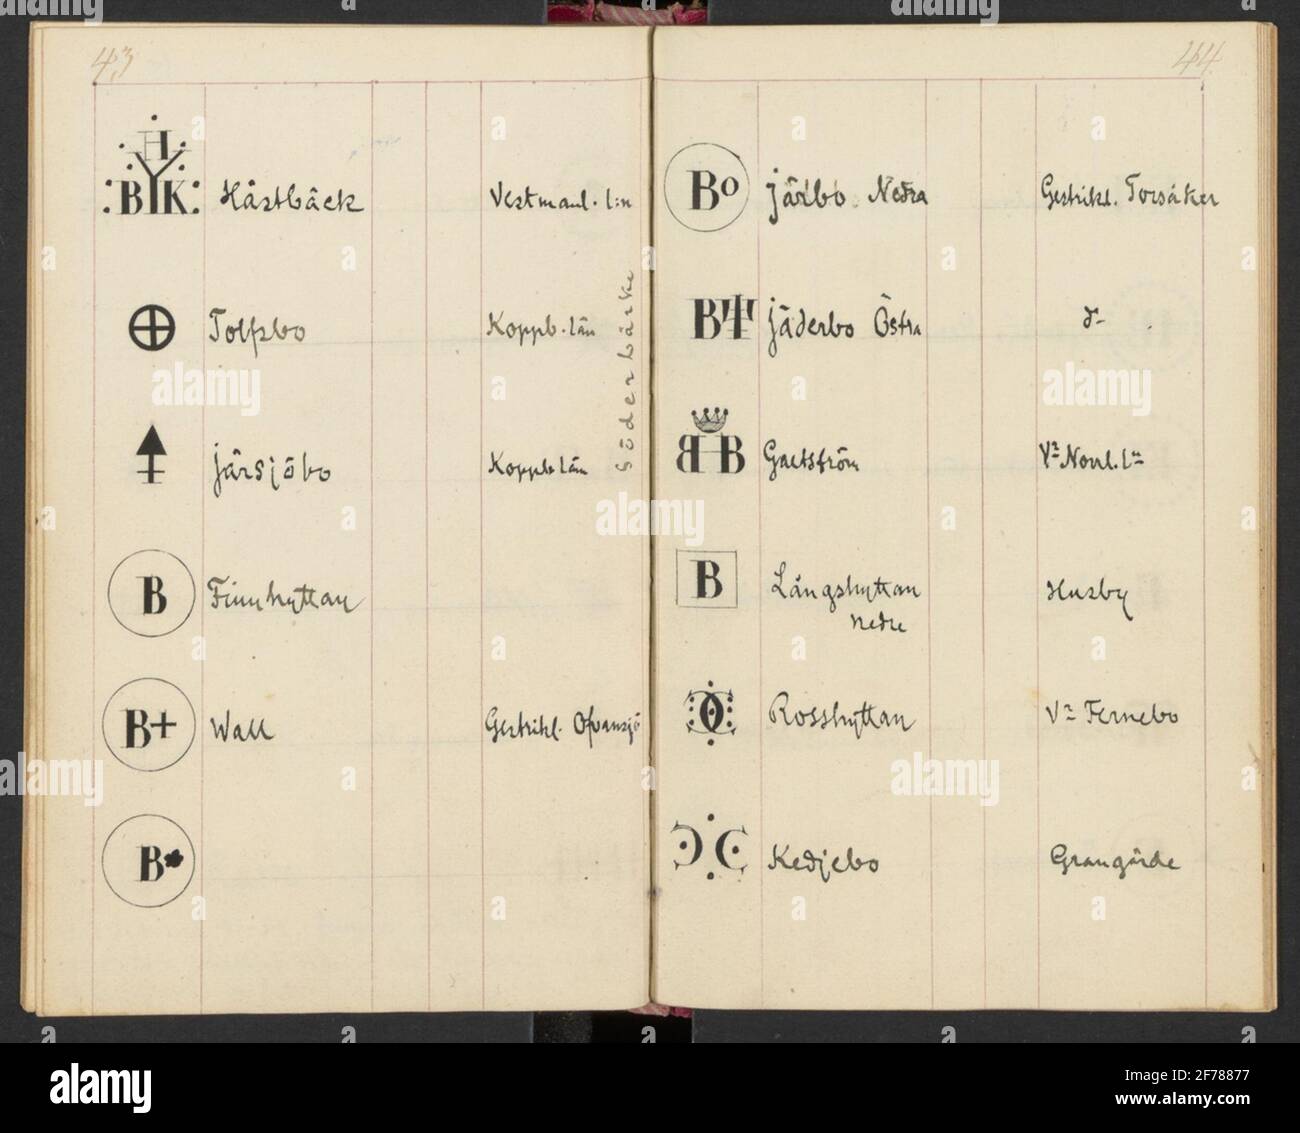 43
H
BYK Hästbäck Vestmanl. l:n
Tolfsbo Koppb. län
Söderbärke
Järsjöbo Koppb. län
B Finnhyttan
B+ Wall Gestrikl. Ofvansjö
B
44
Bo Järbo Nedra Gestrikl. Torsåker
B Jäderbo Östra d-
B H B Galtström Vr Norrl. Ln
B Långshyttan Husby
Nedre
Rosshyttan Vr Fernebo
C C Kedjebo Grangärde
alamy
Image ID: 2F78877
www.alamy.com